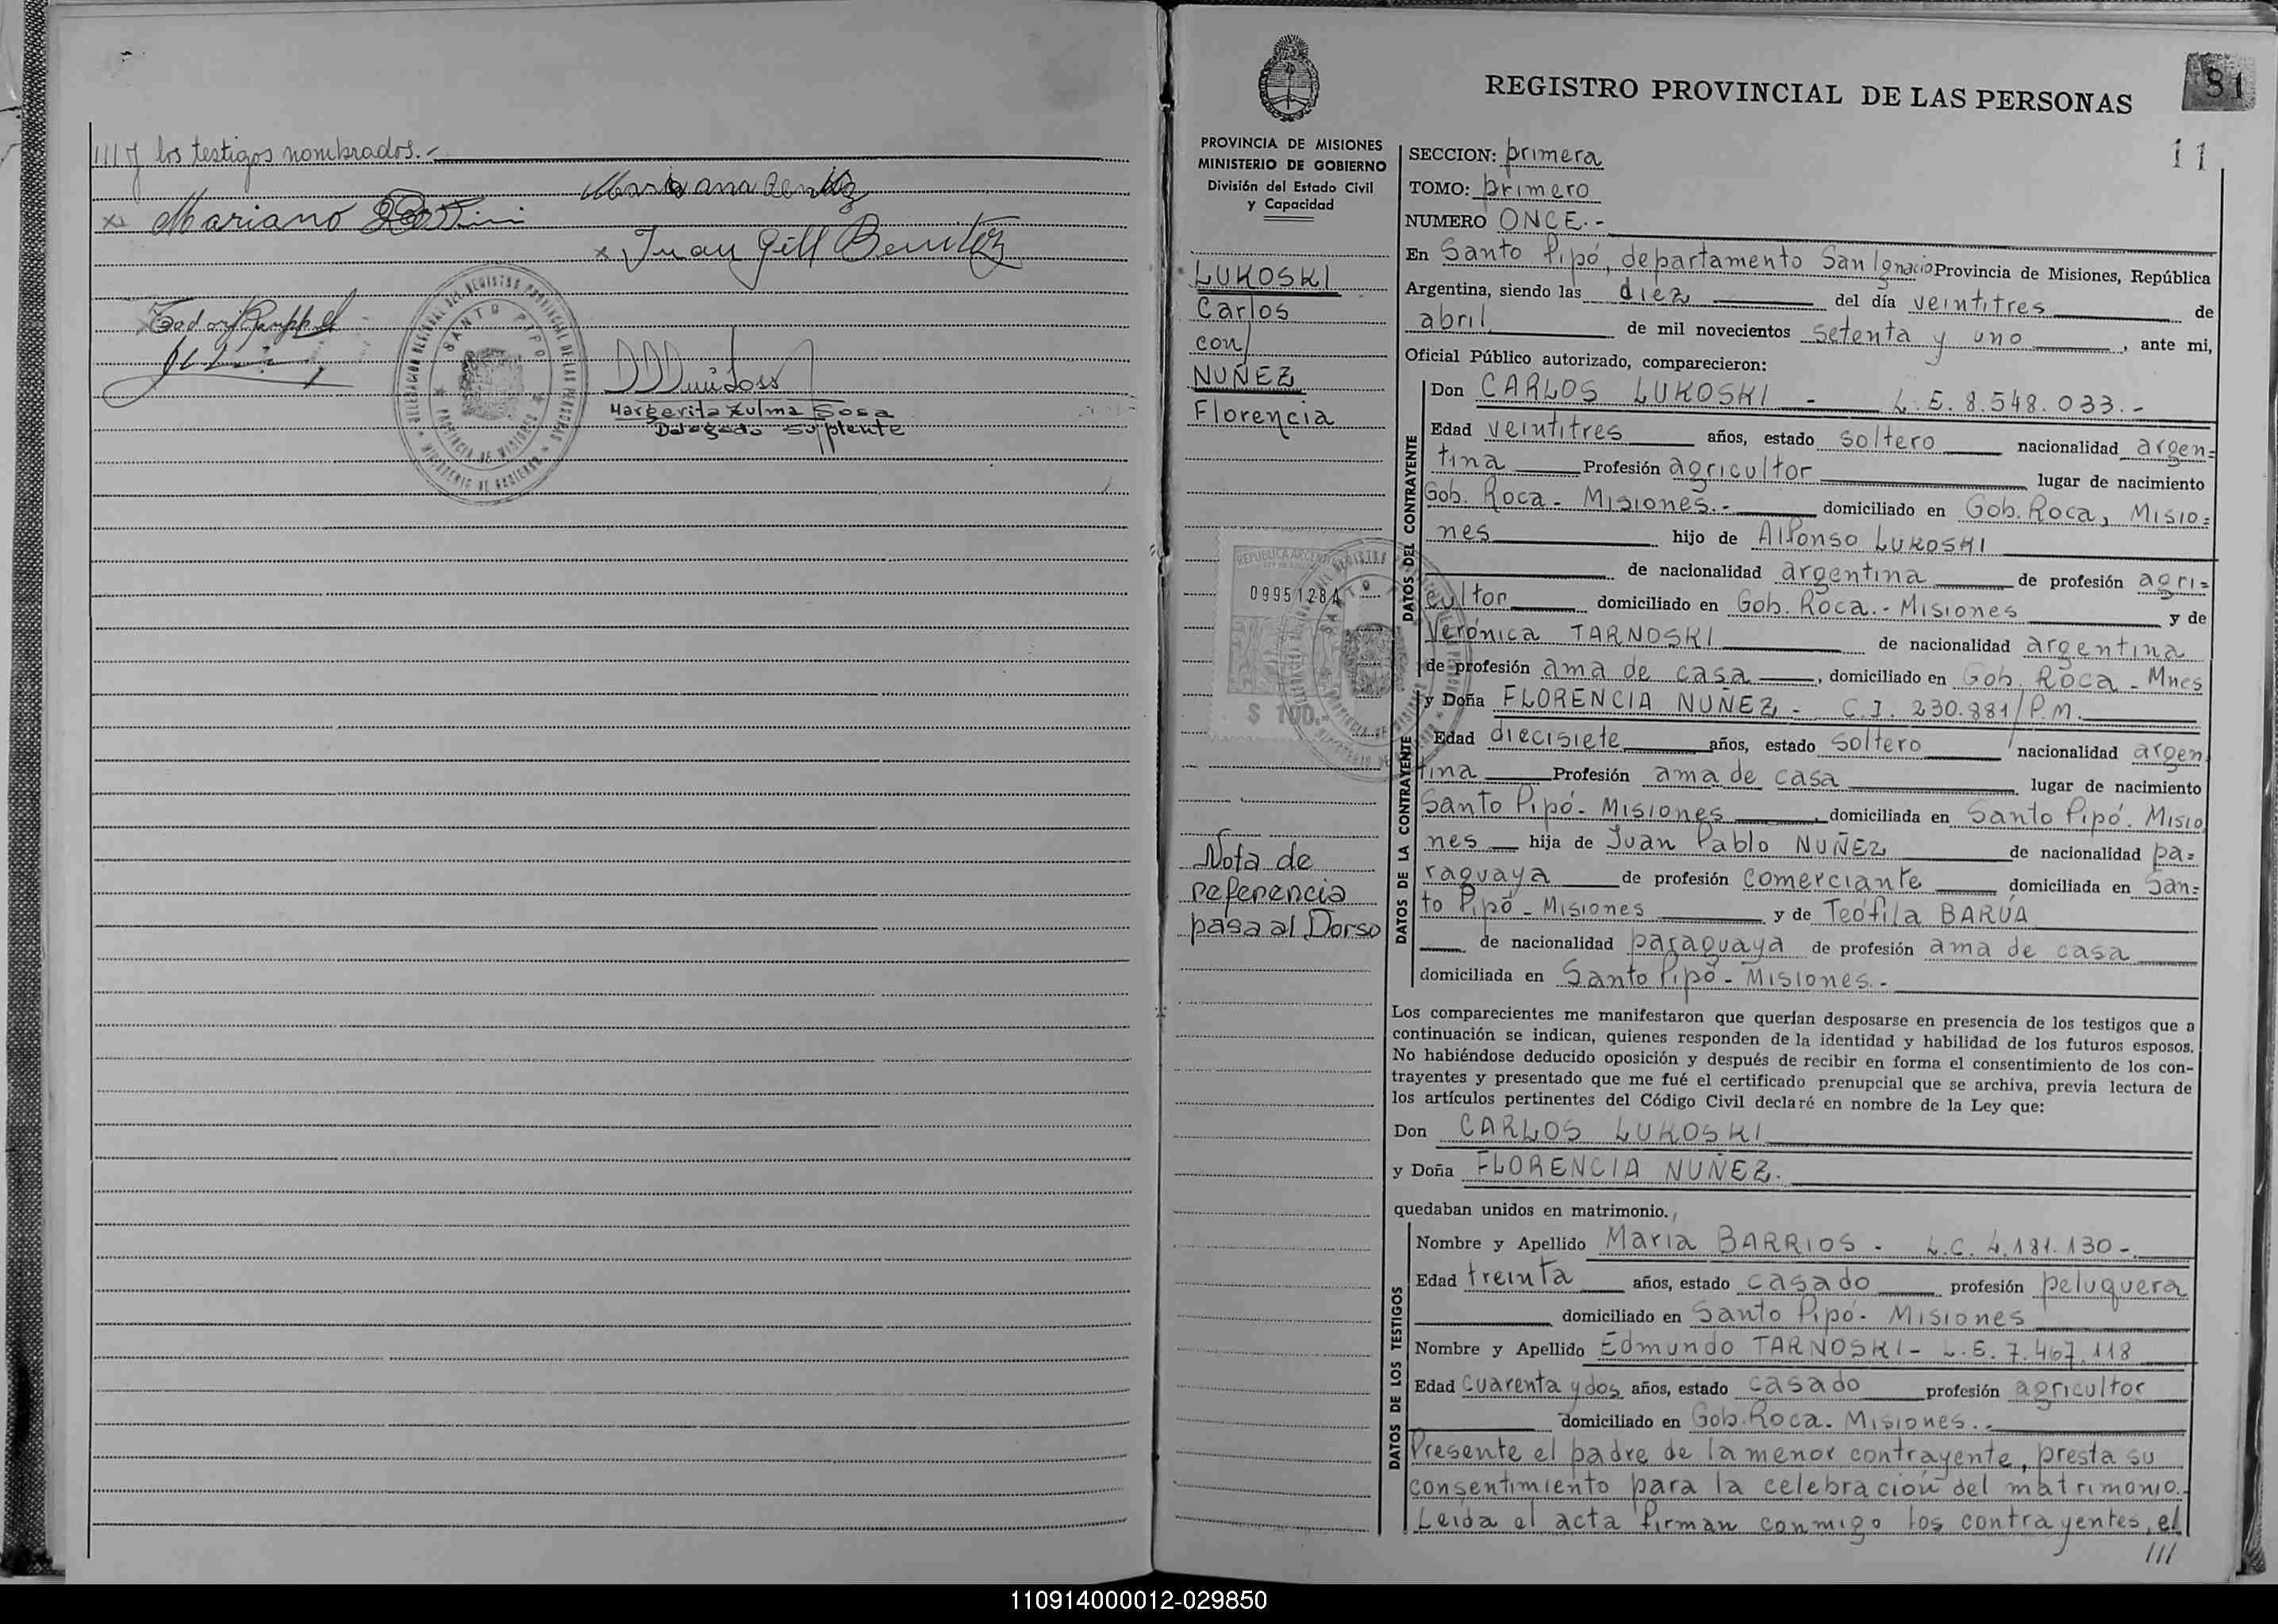 //// y los testigos nombrados.-
Mariana Benitez
x Mariano
x Juan Gill Benitez
SANTO PIPO
PROVINCIA DE MISIONES
Margarita Zulma Sosa
Delegado Suplente
REGISTRO PROVINCIAL DE LAS PERSONAS
81
11
PROVINCIA DE MISIONES
MINISTERIO DE GOBIERNO
División del Estado Civil
y Capacidad
LUKOSKI
Carlos
con/
NUÑEZ
Florencia
REPUBLICA ARGENTINA
0995128A
$ 100.-
Nota de
referencia
pasa al Dorso
SECCION: primera
TOMO: primero
NUMERO ONCE.-
En Santo Pipó, departamento San Ignacio Provincia de Misiones, República
Argentina, siendo las diez del día veintitres de
abril de mil novecientos setenta y uno, ante mi,
Oficial Público autorizado, comparecieron:
DATOS DEL CONTRAYENTE
Don CARLOS LUKOSKI - L.E. 8.548.033.-
Edad veintitres años, estado soltero nacionalidad argen=
tina Profesión agricultor lugar de nacimiento
Gob. Roca - Misiones.- domiciliado en Gob. Roca, Misio=
nes hijo de Alfonso LUKOSKI
de nacionalidad argentina de profesión agri=
cultor domiciliado en Gob. Roca.- Misiones y de
Verónica TARNOSKI de nacionalidad argentina
de profesión ama de casa, domiciliado en Gob. Roca - Mnes
DATOS DE LA CONTRAYENTE
y Doña FLORENCIA NUÑEZ - C.I. 230.881/P.M.
Edad diecisiete años, estado soltero nacionalidad argen
tina Profesión ama de casa lugar de nacimiento
Santo Pipó - Misiones, domiciliada en Santo Pipó. Misio
nes hija de Juan Pablo NUÑEZ de nacionalidad pa=
raguaya de profesión comerciante domiciliada en San=
to Pipó - Misiones y de Teófila BARÚA
de nacionalidad paraguaya de profesión ama de casa
domiciliada en Santo Pipó - Misiones.-
Los comparecientes me manifestaron que querían desposarse en presencia de los testigos que a
continuación se indican, quienes responden de la identidad y habilidad de los futuros esposos.
No habiéndose deducido oposición y después de recibir en forma el consentimiento de los con-
trayentes y presentado que me fué el certificado prenupcial que se archiva, previa lectura de
los artículos pertinentes del Código Civil declaré en nombre de la Ley que:
Don CARLOS LUKOSKI
y Doña FLORENCIA NUÑEZ.
quedaban unidos en matrimonio.
DATOS DE LOS TESTIGOS
Nombre y Apellido Maria BARRIOS - L.C. 4.181.130-.
Edad treinta años, estado casado profesión peluquera
domiciliado en Santo Pipó - Misiones
Nombre y Apellido Edmundo TARNOSKI - L.E. 7.467.118
Edad cuarenta y dos años, estado casado profesión agricultor
domiciliado en Gob. Roca - Misiones.-
Presente el padre de la menor contrayente, presta su
consentimiento para la celebración del matrimonio.
Leída el acta firman conmigo los contrayentes, el
///
110914000012-029850